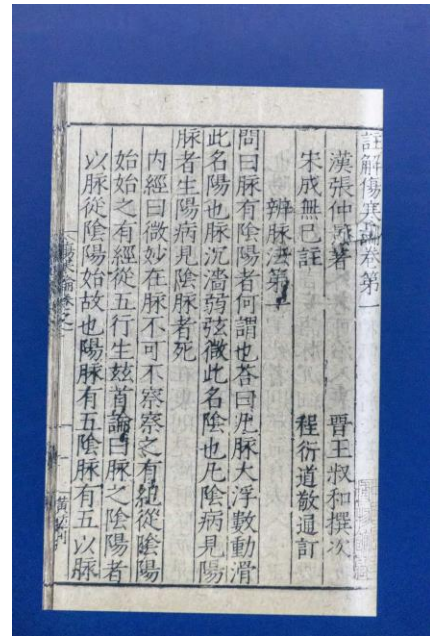 註解傷寒論卷第一
漢張仲景著 晉王叔和撰次
宋成無已註 程衍道敬通訂
辨脉法第一
問曰脉有陰陽者何謂也荅曰凡脉大浮數動滑
此名陽也脉沉濇弱弦微此名陰也凡陰病見陽
脉者生陽病見陰脉者死
內經曰微妙在脉不可不察察之有紀從陰陽
始始之有經從五行生玆首論曰脉之陰陽者
以脉從陰陽始故也陽脉有五陰脉有五以脉
傷寒論卷之一
一